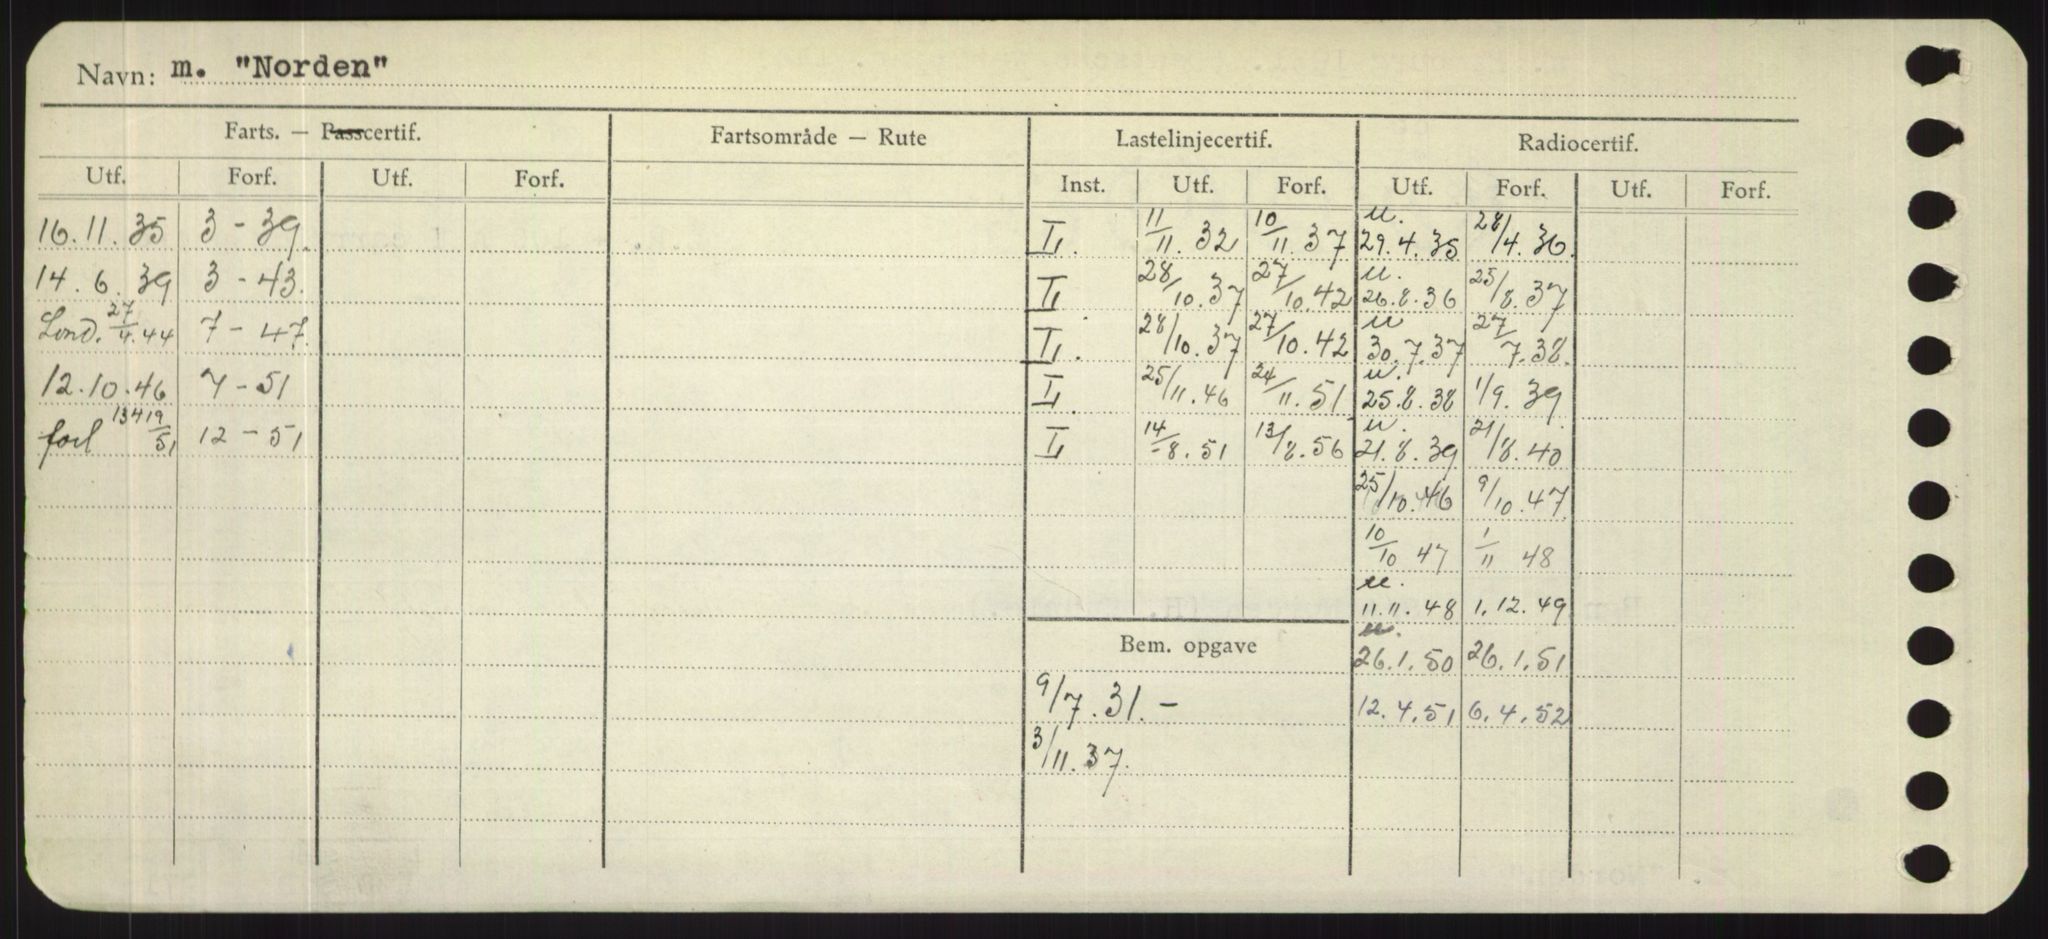 Navn: m. "Norden"
Farts. — Passcertif. Fartsområde — Rute Lastelinjecertif. Radiocertif.
Utf. Forf. Utf. Forf. Inst. Utf. Forf. Utf. Forf. Utf. Forf.
16.11.35 3 - 39. I. 11/11.32 10/11.37 u. 29.4.35 28/4.36.
14.6.39 3 - 43. I 28/10.37 27/10.42 u. 26.8.36 25/8.37
Lond. 27/4.44 7 - 47. I. 28/10.37 27/10.42 u 30.7.37 27/7.38.
12.10.46 7 - 51 I. 25/11.46 24/11.51 u. 25.8.38 1/9.39
forl 12 - 51 I 14/8.51 13/8.56 u. 21.8.39 21/8.40
25/10.46 9/10.47
10/10 47 1/11 48
u. 11.11.48 1.12.49
Bem. opgave u. 26.1.50 26.1.51
9/7.31.— 12.4.51 6.4.52
3/11.37.